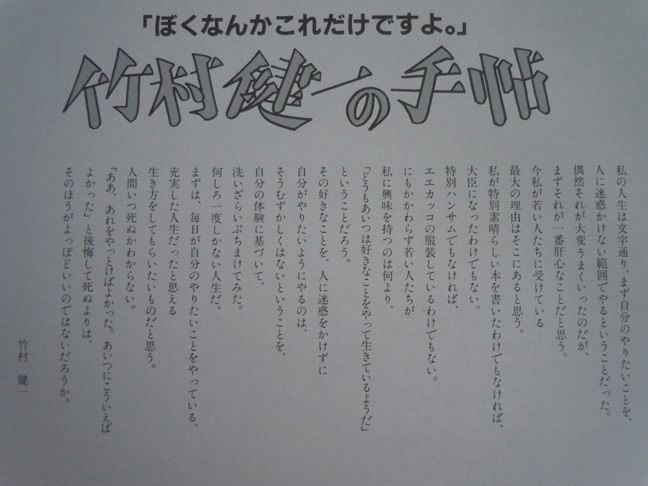 「ぼくなんかこれだけですよ。」
竹村健一の手帖
私の人生は文字通り、まず自分のやりたいことを、
人に迷惑かけない範囲でやるということだった。
偶然それが大変うまくいったのだが、
まずそれが一番肝心なことだと思う。
今私が若い人たちに受けている
最大の理由はそこにあると思う。
私が特別素晴らしい本を書いたわけでもなければ、
大臣になったわけでもない。
特別ハンサムでもなければ、
エエカッコの服装しているわけでもない。
にもかかわらず若い人たちが
私に興味を持つのは何より、
「どうもあいつは好きなことをやって生きているようだ」
ということだろう。
その好きなことを、人に迷惑をかけずに
自分がやりたいようにやるのは、
そうむずかしくはないということを、
自分の体験に基づいて、
洗いざらいぶちまけてみた。
何しろ一度しかない人生だ。
まずは、毎日が自分のやりたいことをやっている、
充実した人生だったと思える
生き方をしてもらいたいものだと思う。
人間いつ死ぬかわからない。
「ああ、あれをやっとけばよかった。あいつにこういえば
よかった」と後悔して死ぬよりは、
そのほうがよっぽどいいのではないだろうか。
竹村 健一